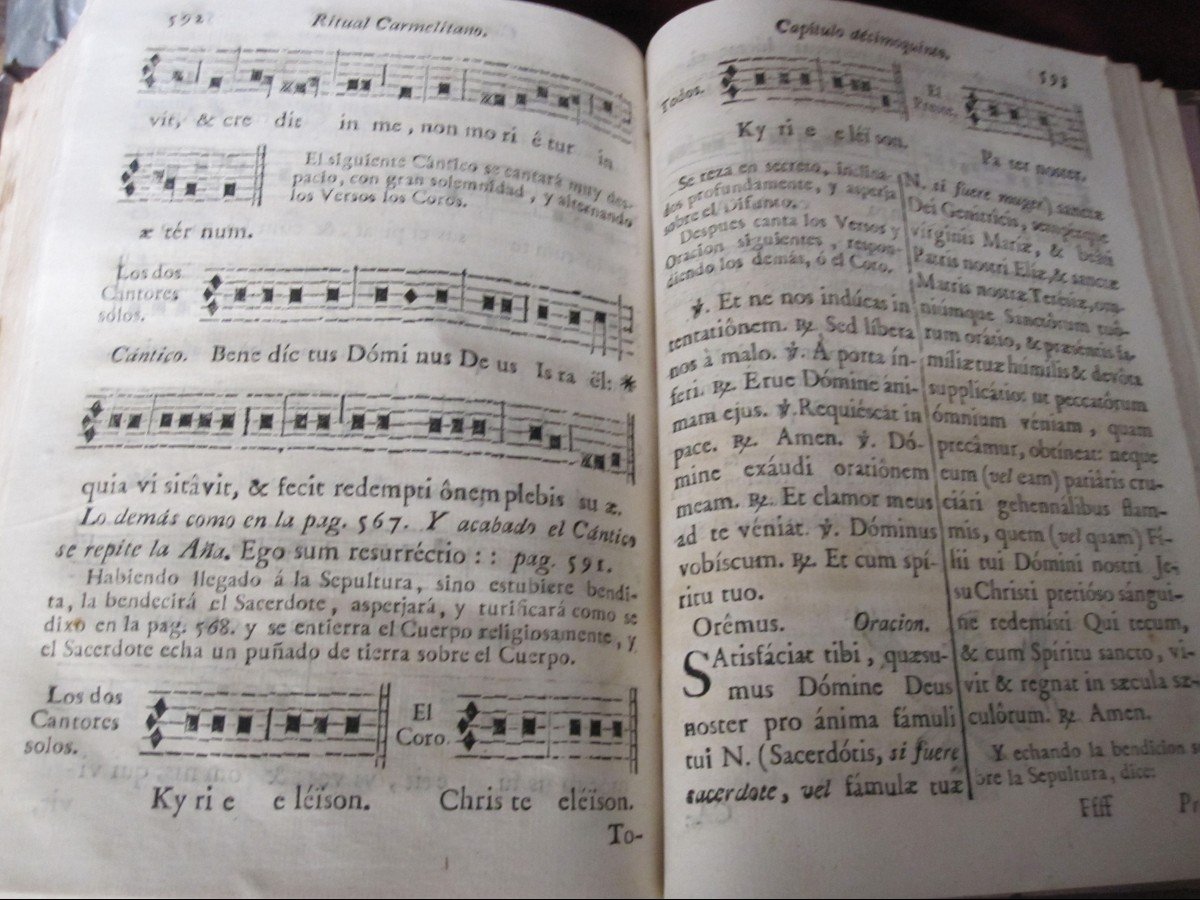 592 Ritual Carmelitano.
vit, & cre dit in me, non mo ri ê tur in
El siguiente Cántico se cantará muy des-
pacio, con gran solemnidad, y alternando
los Versos los Coros.
æ tér num.
Los dos
Cantores
solos.
Cántico. Bene díc tus Dómi nus De us Is ra ël: *
quia vi sitâvit, & fecit redempti ônem plebis su æ.
Lo demás como en la pag. 567. Y acabado el Cántico
se repite la Aña. Ego sum resurréctio : : pag. 591.
Habiendo llegado á la Sepultura, sino estubiere bendi-
ta, la bendecirá el Sacerdote, asperjará, y turificará como se
dixo en la pag. 568. y se entierra el Cuerpo religiosamente, y
el Sacerdote echa un puñado de tierra sobre el Cuerpo.
Los dos
Cantores
solos.
Ky ri e e léison.
El
Coro.
Chris te eléison.
To-
Capítulo décimoquinto. 593
Todos.
Ky ri e e léi son.
El
Prior.
Pa ter noster.
Se reza en secreto, inclina-
dos profundamente, y asperja
sobre el Difunto.
Despues canta los Versos y
Oracion siguientes, respon-
diendo los demás, ó el Coro.
℣. Et ne nos indúcas in
tentatiônem. ℟. Sed líbera
nos à malo. ℣. À porta ín-
feri. ℟. Erue Dómine áni-
mam ejus. ℣. Requiéscat in
pace. ℟. Amen. ℣. Dó-
mine exáudi oratiônem
meam. ℟. Et clamor meus
ad te véniat. ℣. Dóminus
vobíscum. ℟. Et cum spí-
ritu tuo.
Orêmus. Oracion.
SAtisfáciat tibi, quæsu-
mus Dómine Deus
noster pro ánima fámuli
tui N. (Sacerdótis, si fuere
sacerdote, vel fámulæ tuæ
N. si fuere muger) sanctæ
Dei Genitrícis, sempérque
vírginis Mariæ, & beáti
Patris nostri Eliæ, & sanctæ
Matris nostræ Terésiæ, om-
niúmque Sanctôrum tuô-
rum orátio, & præséntis fa-
míliæ tuæ húmilis & devôta
supplicátio: ut peccatôrum
ómnium véniam, quam
precâmur, obtíneat: neque
eum (vel eam) patiâris cru-
ciári gehennálibus flam-
mis, quem (vel quam) Fí-
lii tui Dómini nostri Je-
su Christi pretióso sángui-
ne redemísti Qui tecum,
& cum Spíritu sancto, vi-
vit & regnat in sæcula sæ-
culôrum. ℟. Amen.
Y echando la bendicion so
bre la Sepultura, dice:
Ffff Pr